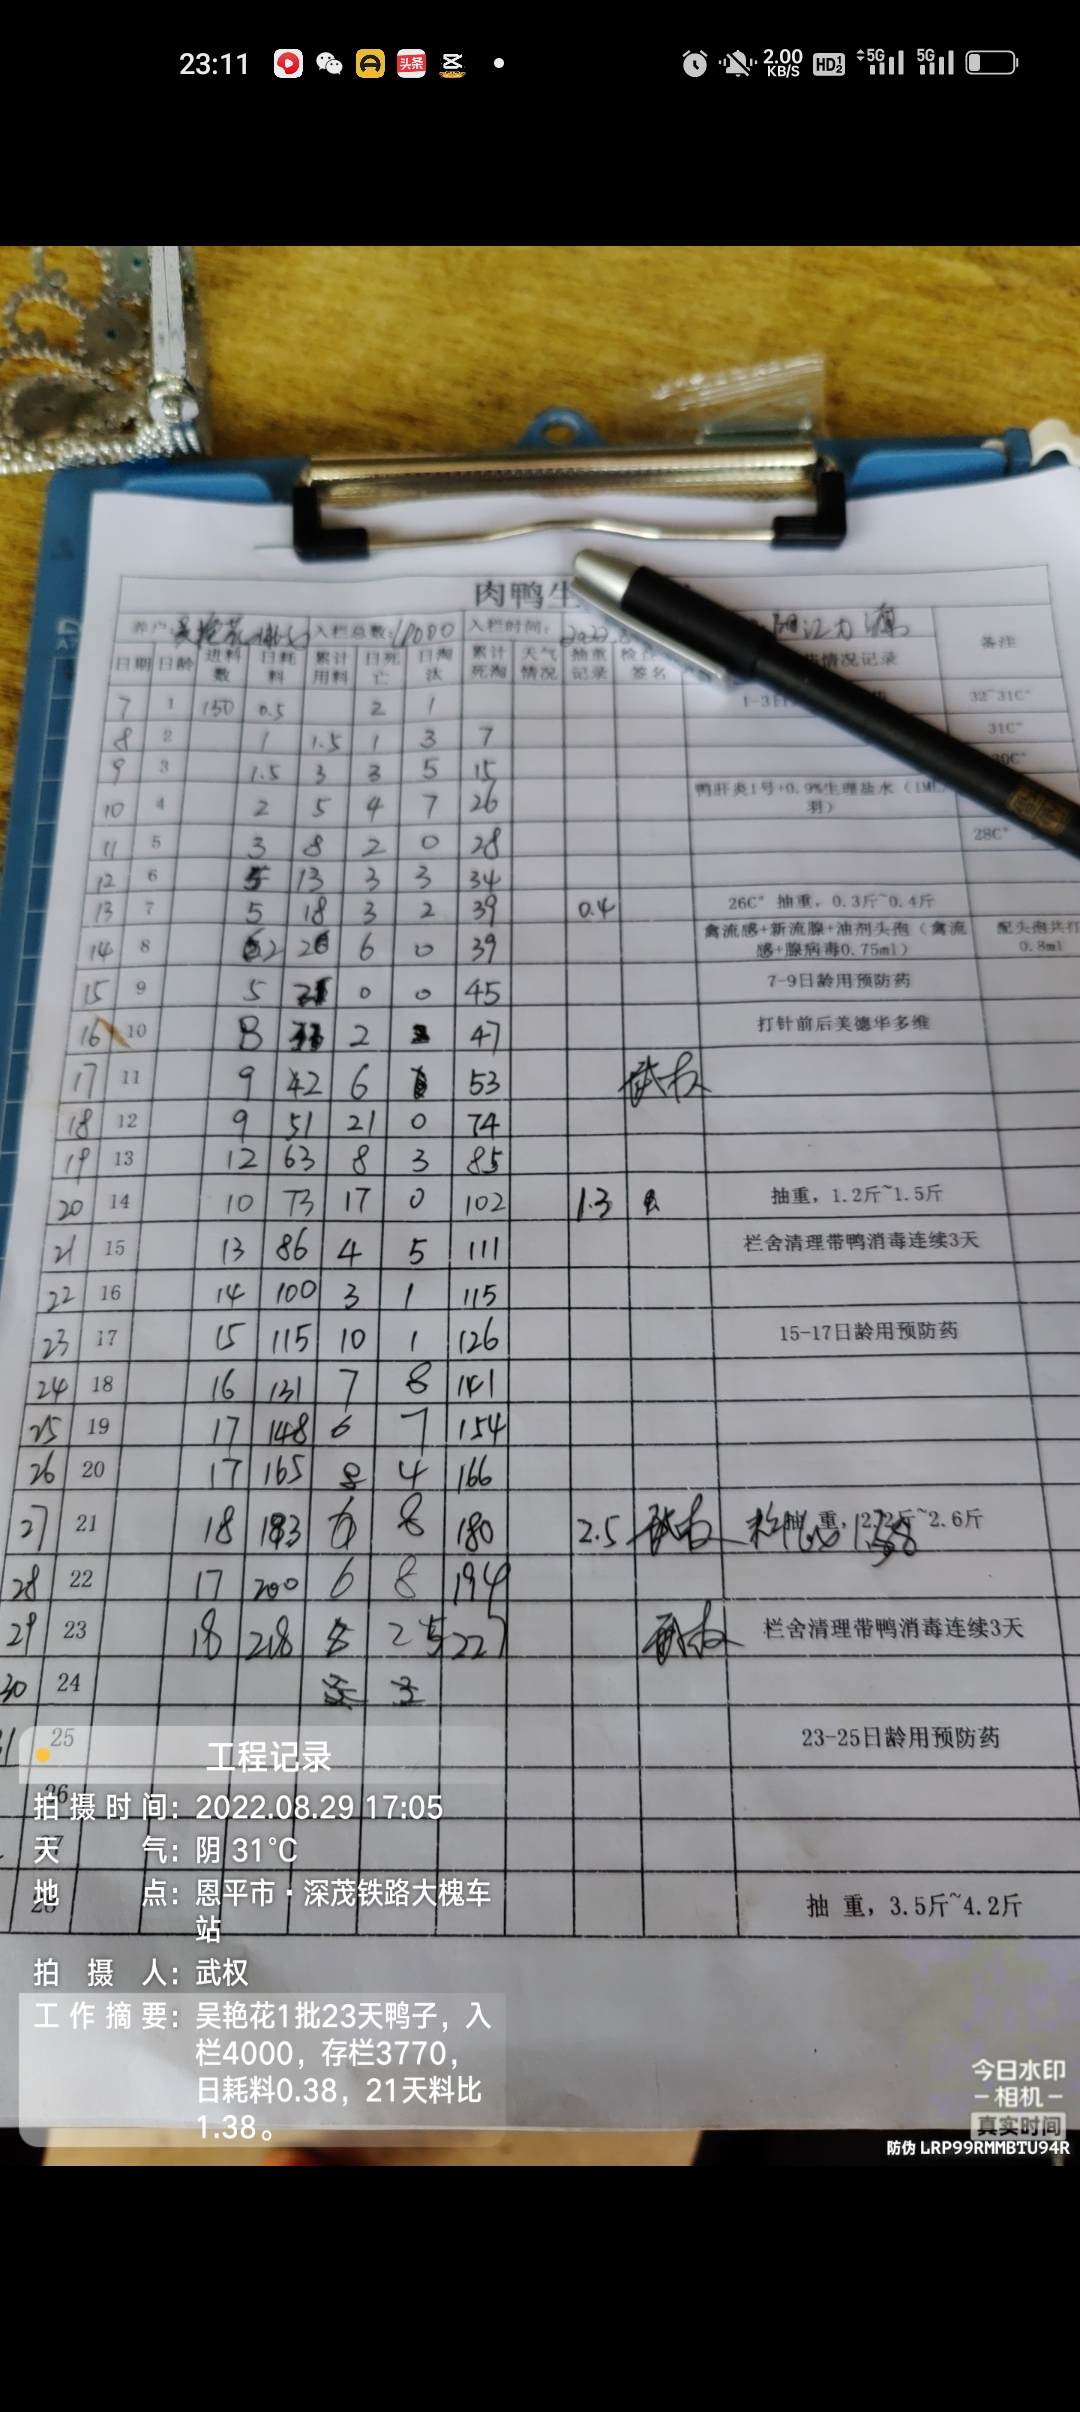 23:11 头条 2.00 KB/S HD 1 2 5G 5G
肉鸭生
养户: 吴艳花 入栏总数: 入栏时间: 2022. 备注
日期 日龄 进料数 日耗料 累计用料 日死亡 日淘汰 累计死淘 天气情况 抽重记录 签名 情况记录
7 1 150 0.5 2 1 1-3日 32~31C°
8 2 1 1.5 1 3 7 31C°
9 3 1.5 3 3 5 15 30C°
10 4 2 5 4 7 26 鸭肝炎1号+0.9%生理盐水(1ML/羽)
11 5 3 8 2 0 28 28C°
12 6 5 13 3 3 34
13 7 5 18 3 2 39 0.4 26C° 抽重,0.3斤~0.4斤
14 8 6 0 39 禽流感+新流腺+油剂头孢(禽流感+腺病毒0.75ml) 配头孢共打0.8ml
15 9 5 0 0 45 7-9日龄用预防药
16 10 8 2 47 打针前后美德华多维
17 11 9 42 6 53 武权
18 12 9 51 21 0 74
19 13 12 63 8 3 85
20 14 10 73 17 0 102 1.3 抽重,1.2斤~1.5斤
21 15 13 86 4 5 111 栏舍清理带鸭消毒连续3天
22 16 14 100 3 1 115
23 17 15 115 10 1 126 15-17日龄用预防药
24 18 16 131 7 8 141
25 19 17 148 6 7 154
26 20 17 165 8 4 166
27 21 18 183 6 8 180 2.5 武权 抽 重,2.2斤~2.6斤
28 22 17 200 6 8 194
29 23 18 218 5 25 227 武权 栏舍清理带鸭消毒连续3天
30 24
31 25 23-25日龄用预防药
26
抽 重,3.5斤~4.2斤
工程记录
拍摄时间: 2022.08.29 17:05
天 气: 阴 31℃
地 点: 恩平市·深茂铁路大槐车
站
拍 摄 人: 武权
工作摘要: 吴艳花1批23天鸭子,入
栏4000,存栏3770,
日耗料0.38,21天料比
1.38。
今日水印
-相机-
真实时间
防伪 LRP99RMMBTU94R